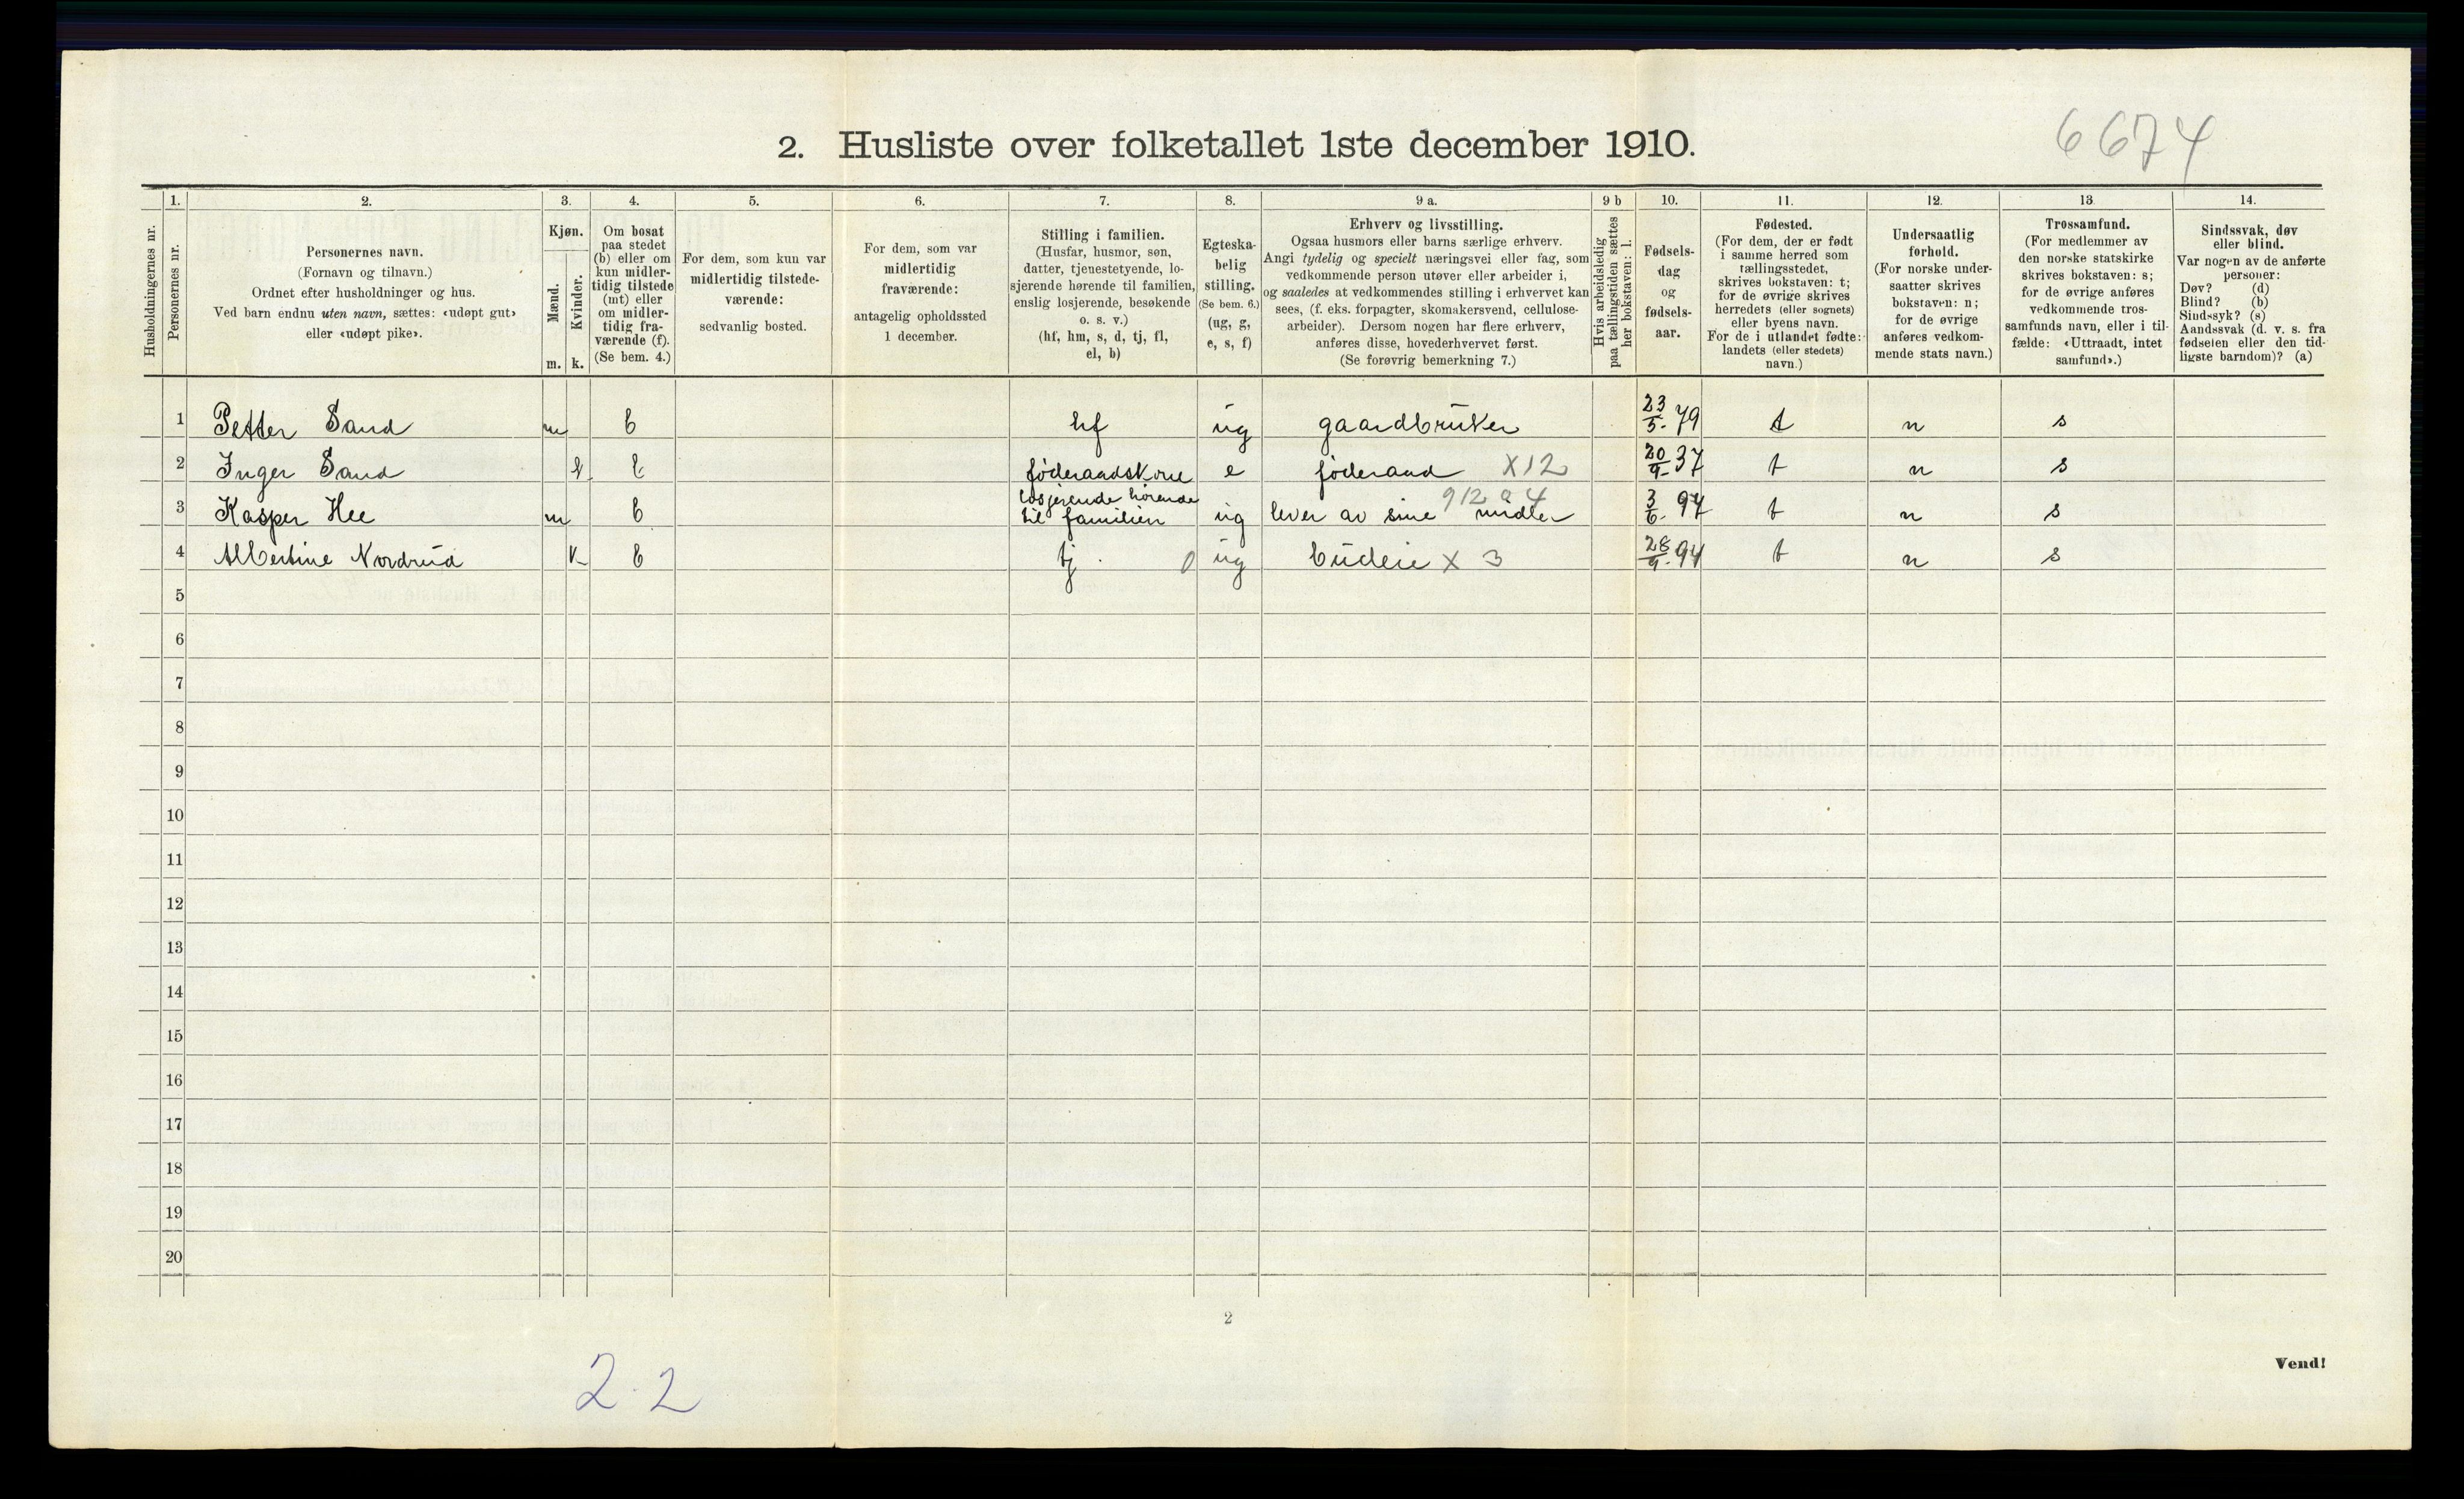 6674
2. Husliste over folketallet 1ste december 1910.
Husholdningernes nr.
1.
Personernes nr.
2.
Personernes navn.
(Fornavn og tilnavn.)
Ordnet efter husholdninger og hus.
Ved barn endnu uten navn, sættes: «udøpt gut»
eller «udøpt pike».
3.
Kjøn.
Mænd.
Kvinder.
m. k.
4.
Om bosat
paa stedet
(b) eller om
kun midler-
tidig tilstede
(mt) eller
om midler-
tidig fra-
værende (f).
(Se bem. 4.)
5.
For dem, som kun var
midlertidig tilstede-
værende:
sedvanlig bosted.
6.
For dem, som var
midlertidig
fraværende:
antagelig opholdssted
1 december.
7.
Stilling i familien.
(Husfar, husmor, søn,
datter, tjenestetyende, lo-
sjerende hørende til familien,
enslig losjerende, besøkende
o. s. v.)
(hf, hm, s, d, tj, fl,
el, b)
8.
Egteska-
belig
stilling.
(Se bem. 6.)
(ug, g,
e, s, f)
9 a.
Erhverv og livsstilling.
Ogsaa husmors eller barns særlige erhverv.
Angi tydelig og specielt næringsvei eller fag, som
vedkommende person utøver eller arbeider i,
og saaledes at vedkommendes stilling i erhvervet kan
sees, (f. eks. forpagter, skomakersvend, cellulose-
arbeider). Dersom nogen har flere erhverv,
anføres disse, hovederhvervet først.
(Se forøvrig bemerkning 7.)
9 b
Hvis arbeidsledig
paa tællingstiden sættes
her bokstaven: l.
10.
Fødsels-
dag
og
fødsels-
aar.
11.
Fødested.
(For dem, der er født
i samme herred som
tællingsstedet,
skrives bokstaven: t;
for de øvrige skrives
herredets (eller sognets)
eller byens navn.
For de i utlandet fødte:
landets (eller stedets)
navn.)
12.
Undersaatlig
forhold.
(For norske under-
saatter skrives
bokstaven: n;
for de øvrige
anføres vedkom-
mende stats navn.)
13
Trossamfund.
(For medlemmer av
den norske statskirke
skrives bokstaven: s;
for de øvrige anføres
vedkommende tros-
samfunds navn, eller i til-
fælde: «Uttraadt, intet
samfund».)
14.
Sindssvak, døv
eller blind.
Var nogen av de anførte
personer:
Døv? (d)
Blind? (b)
Sindssyk? (s)
Aandssvak (d. v. s. fra
fødselen eller den tid-
ligste barndom)? (a)
1 Petter Sand m b hf ug gaardbruker 23/5-79 t n s
2 Inger Sand k b føderaadskone e føderaad X12 20/9-37 t n s
3 Kasper Hee m b losjerende hørende til familien ug lever av sine midler 912 a 4 3/6-97 t n s
4 Albertine Nordrud k b tj. 0 ug budeie X 3 28/9-94 t n s
5
6
7
8
9
10
11
12
13
14
15
16
17
18
19
20
2
Vend!
2.2